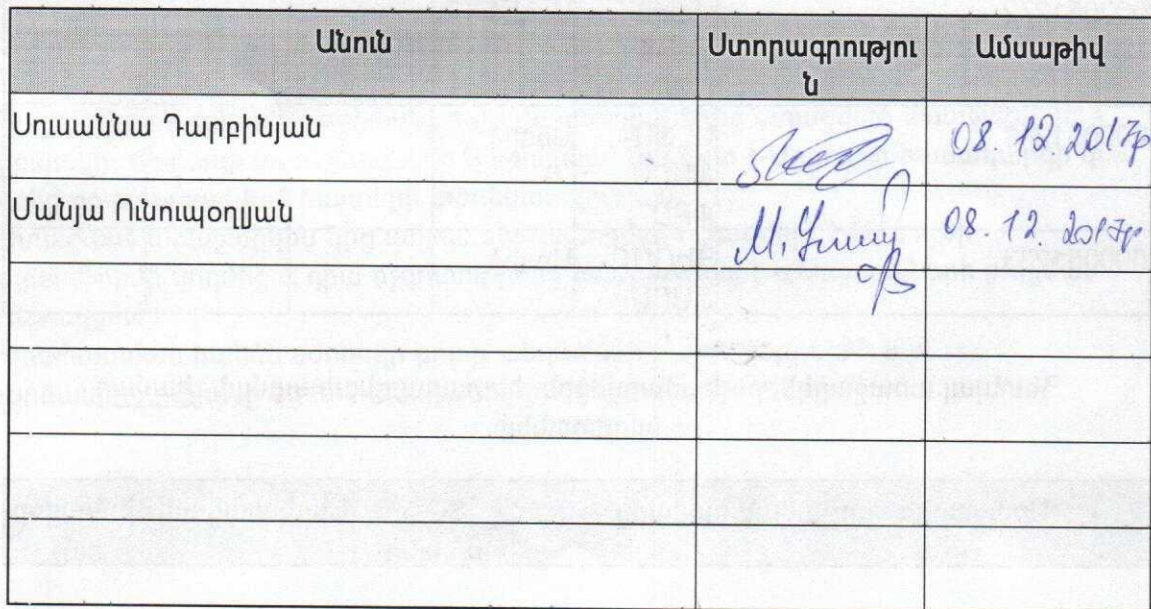 Անուն Ստորագրությու
ն Ամսաթիվ
Սուսաննա Դարբինյան 08.12.2017թ
Մանյա Ունուպօղլյան 08.12.2017թ